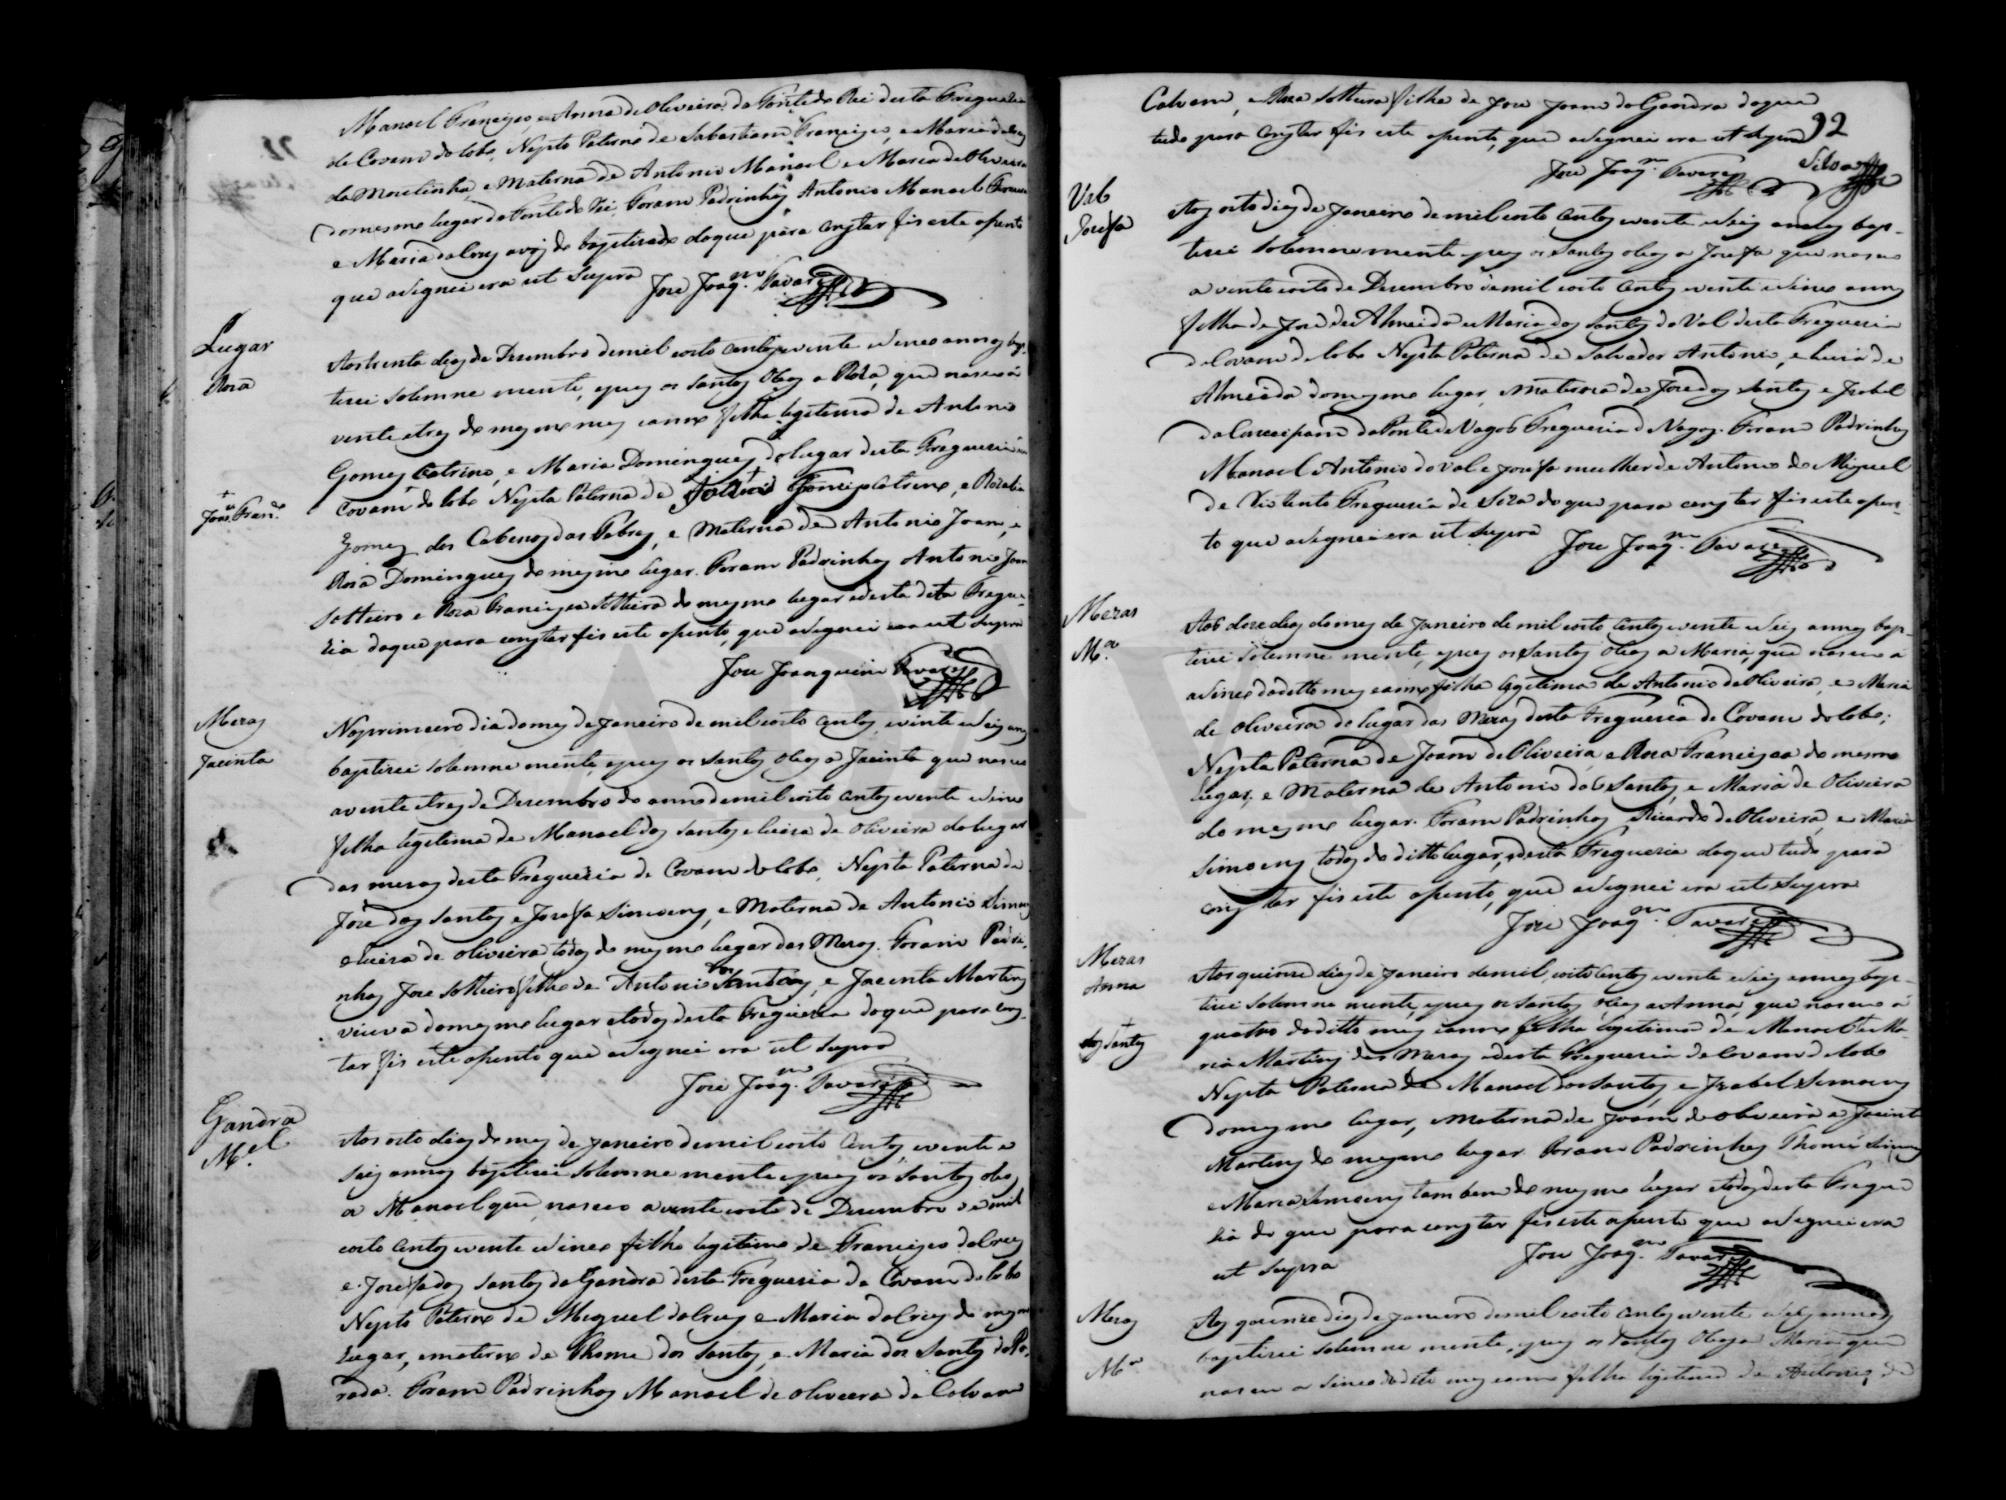 Manoel Francisco, e Anna de Oliveira, da Fonte do Rei desta Freguezia
de Covam do lobo, Nepto Paterno de Sebastiam Francisco, e Maria da Cruz
da Moitinha, e Materna de Antonio Manoel e Maria de Oliveira
do mesmo lugar da Fonte do Rei. Foram Padrinhos Antonio Manoel
e Maria da Cruz avos do baptizado do que para constar fis este asento
que asignei era ut supra Joze Joaqm. Tavares
Lugar
Roza
Aos trinta dias de Dezembro de mil oito centos e vinte e sinco annos bap-
tizei solemne mente, e pus os santos Oleos a Roza, que nasceo a
vinte e tres do mesmo mes e anno filha legitima de Antonio
Gomes Catrino, e Maria Domingues do lugar desta Freguezia de
Joam Fran.
Covam do lobo Nepta Paterna de Gomes Catrino, e Rozalia
Gomes dos Cabesos das Pedras, e Materna de Antonio Joam, e
Roza Domingues do mesmo lugar. Foram Padrinhos Antonio Joam
solteiro e Roza Francisca solteira do mesmo lugar e desta dita Fregue-
zia do que para constar fis este asento, que asignei era ut supra
Joze Joaquim Tavares
Mezas
Jacinta
No primeiro dia do mes de Janeiro de mil oito centos e vinte e seis annos
baptizei solemne mente, e pus os santos oleos a Jacinta que nasceo
a vinte e tres de Dezembro do anno de mil oito centos e vinte e sinco
filha legitima de Manoel dos santos e Luiza de oliveira do lugar
das mezas desta Freguezia de Covam do lobo, Nepta Paterna de
Joze dos santos e Josefa Simoens, e Materna de Antonio Simoens
e Luiza de oliveira todos do mesmo lugar das Mezas. Foram Padri-
nhos Joze solteiro filho de Antonio dos Santos, e Jacinta Martins
viuva do mesmo lugar e todos desta Freguezia do que para cons-
tar fis este asento que asignei era ut supra
Joze Joaqm. Tavares
Gandra
Mel.
Aos oito dias do mes de Janeiro de mil oito centos e vinte e
seis annos baptizei solemne mente e pus os santos oleos
a Manoel que nasceo a vinte e oito de Dezembro de mil
oito centos e vinte e sinco filho legitimo de Francisco da Cruz
e Josefa dos santos da Gandra desta Freguezia de Covam do lobo
Nepto Paterno de Miguel da Cruz e Maria da Cruz do mesmo
lugar, e materno de Thome dos santos, e Maria dos Santos da
rada. Foram Padrinhos Manoel de oliveira de Calvam
92
Calvam, e Roza solteira filha de Joze Joam da Gandra do que
tudo para constar fis este asento, que asignei era ut supra
Joze Joaqm. Tavares
Silva
Val
Josefa
Aos oito dias de Janeiro de mil oito centos e vinte e seis annos bap-
tizei solemne mente e pus os santos oleos a Josefa que nasceo
a vinte e oito de Dezembro de mil oito centos e vinte e sinco annos
filha de Joze de Almeida e Maria dos santos do Val desta Freguezia
de Covam do lobo Nepta Paterna de Salvador Antonio, e Luiza de
Almeida do mesmo lugar, e materna de Joze dos santos e Izabel
da Conceiçam da Ponte de Vagos Freguezia de Vagos. Foram Padrinhos
Manoel Antonio do Val e Josefa mulher de Antonio de Miguel
de Freguezia de Soza do que para constar fis este asen-
to que asignei era ut supra Joze Joaqm. Tavares
Mezas
Ma.
Aos doze dias do mes de Janeiro de mil oito centos e vinte e seis annos bap-
tizei solemne mente, e pus os santos oleos a Maria, que nasceo a
sinco do ditto mes e anno filha legitima de Antonio de Oliveira, e Maria
de oliveira do lugar das Mezas desta Freguezia de Covam do lobo;
Nepta Paterna de Joam de Oliveira, e Roza Francisca do mesmo
lugar, e Materna de Antonio dos Santos, e Maria de Oliveira
do mesmo lugar. Foram Padrinhos Ricardo de Oliveira, e Maria
Simoens todos do ditto lugar, e desta Freguezia do que tudo para
constar fis este asento, que asignei era ut supra
Joze Joaqm. Tavares
Mezas
Anna
dos Santos
Aos quinze dias de Janeiro de mil oito centos e vinte e seis annos bap-
tizei solemne mente, e pus os santos oleos a Anna, que nasceo a
quatro do ditto mes e anno filha legitima de Manoel e Ma-
ria Martins das Mezas e desta Freguezia de Covam do lobo
Nepta Paterna de Manoel dos Santos, e Izabel Simoens
do mesmo lugar, e materna de Joam de oliveira e Jacinta
Martins do mesmo lugar. Foram Padrinhos Thomé Simoens
e Maria Simoens tambem do mesmo lugar e todos desta Fregue-
zia do que para constar fis este asento que asignei era
ut supra Joze Joaqm. Tavares
Mezas
Ma.
Aos quinze dias de Janeiro de mil oito centos e vinte e seis annos
baptizei solemne mente, e pus os santos Oleos a Maria que
nasceo a sinco do dito mes e anno filha legitima de Antonio de